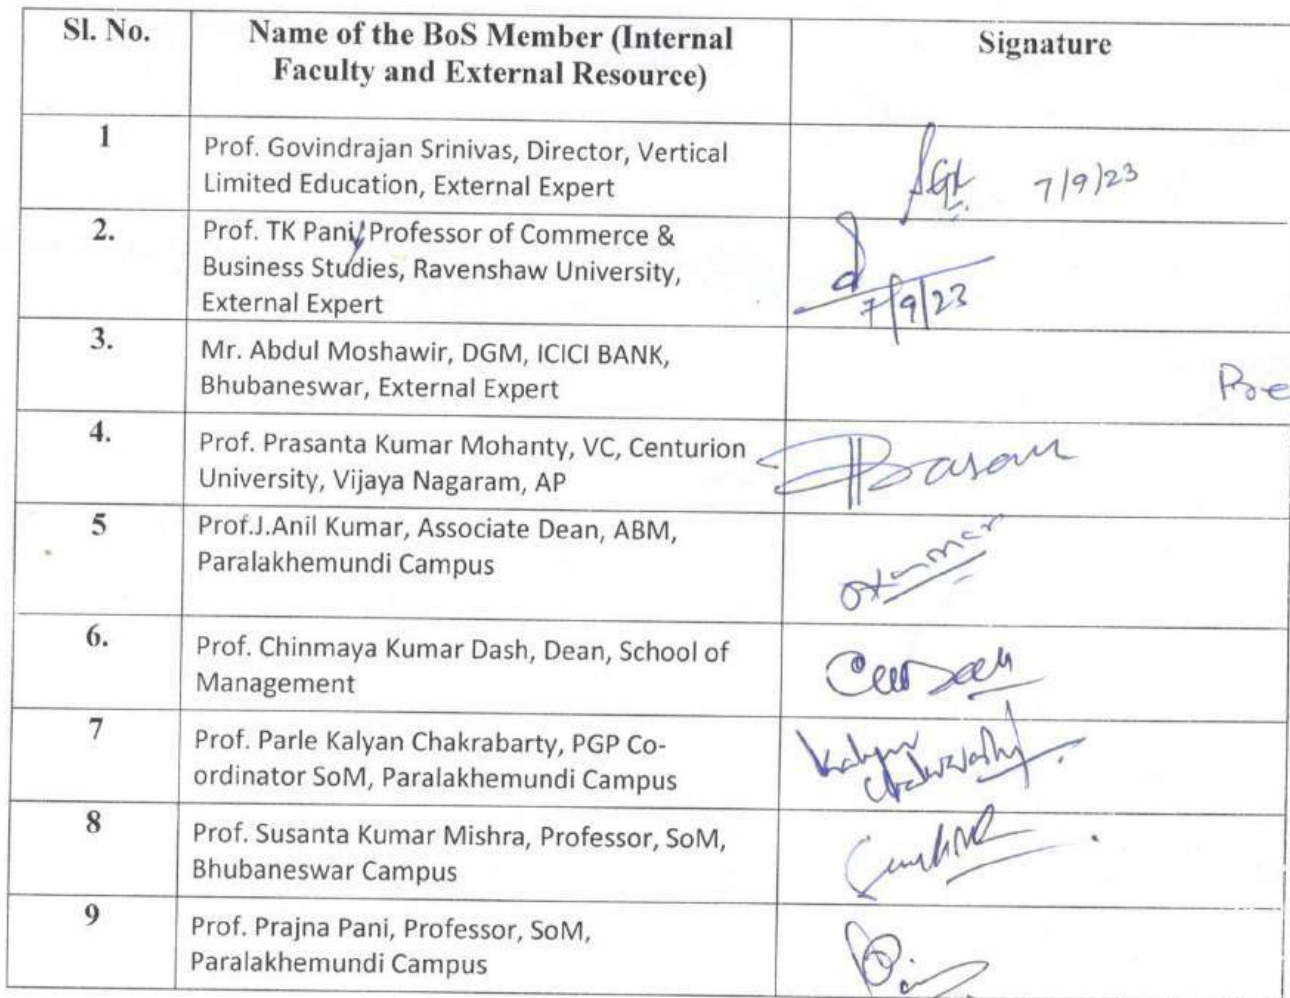 Sl. No. Name of the BoS Member (Internal Signature
Faculty and External Resource)
1 Prof. Govindrajan Srinivas, Director, Vertical
Limited Education, External Expert 7/9/23
2. Prof. TK Pani, Professor of Commerce &
Business Studies, Ravenshaw University,
External Expert 7/9/23
3. Mr. Abdul Moshawir, DGM, ICICI BANK,
Bhubaneswar, External Expert
4. Prof. Prasanta Kumar Mohanty, VC, Centurion
University, Vijaya Nagaram, AP
5 Prof.J.Anil Kumar, Associate Dean, ABM,
Paralakhemundi Campus
6. Prof. Chinmaya Kumar Dash, Dean, School of
Management
7 Prof. Parle Kalyan Chakrabarty, PGP Co-
ordinator SoM, Paralakhemundi Campus
8 Prof. Susanta Kumar Mishra, Professor, SoM,
Bhubaneswar Campus
9 Prof. Prajna Pani, Professor, SoM,
Paralakhemundi Campus